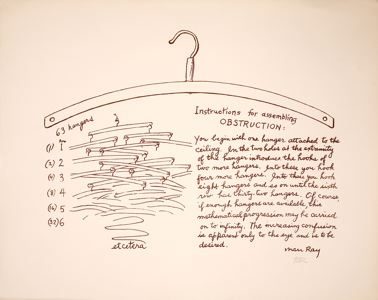 Instructions for assembling
OBSTRUCTION:
63 hangers
(1) 1
(2) 2
(4) 3
(8) 4
(16) 5
(32) 6
etcetera
You begin with one hanger attached to the
ceiling. In the two holes at the extremity
of the hanger introduce the hooks of
two more hangers. Into these you hook
four more hangers. Into this you hook
eight hangers and so on until the sixth
row has thirty-two hangers. Of course,
if enough hangers are available, this
mathematical progression may be carried
on to infinity. The increasing confusion
is apparent only to the eye and is to be
desired.
Man Ray